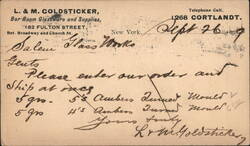 L. & M. GOLDSTICKER,
Telephone Call.
Bar Room Glassware and Supplies,
1268 CORTLANDT.
162 FULTON STREET,
Bet. Broadway and Church St.
New York, Sept 26
Salem Glass Works
Gents
Please enter our order and
Ship at once
5 grs. Ambers Turned Mould
5 grs Ambers Turned Mould
Yours truly
L & M Goldsticker